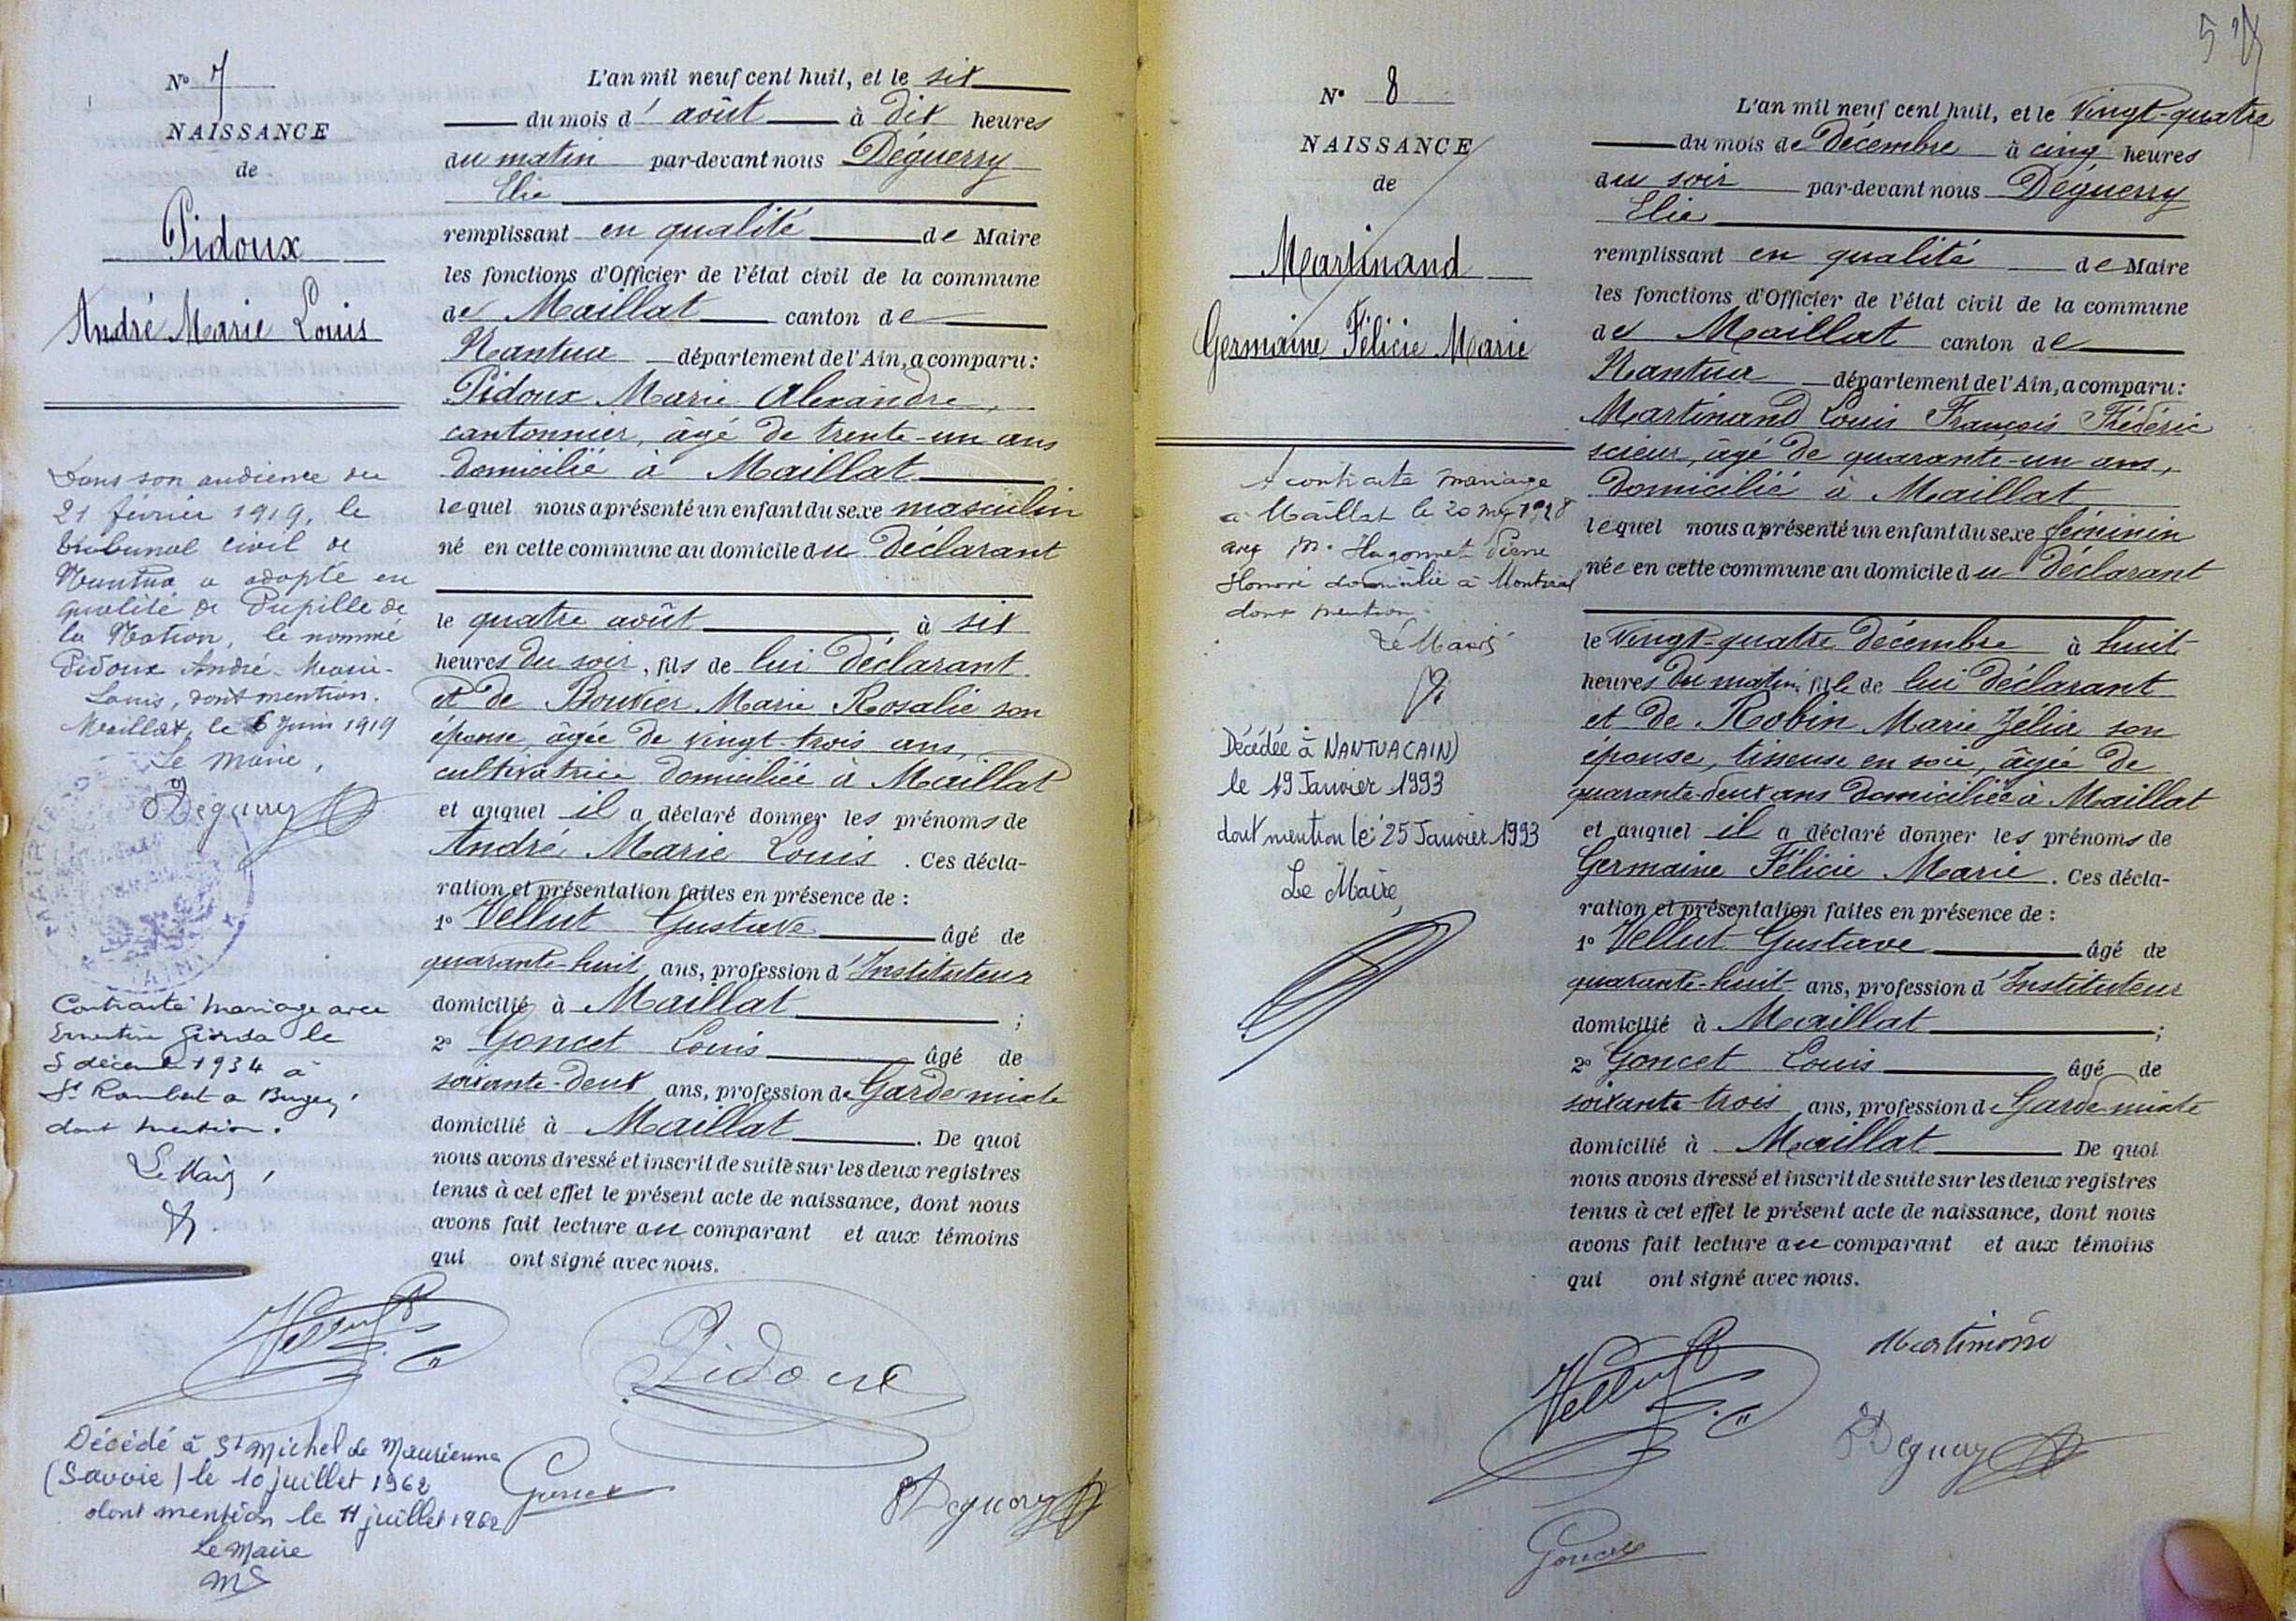 N° 7
NAISSANCE
de
Pidoux
André Marie Louis
Dans son audience du
21 février 1919, le
tribunal civil de
Nantua a adopté en
qualité de Pupille de
la Nation, le nommé
Pidoux André-Marie-
Louis, dont mention.
Maillat, le 6 Juin 1919
Le Maire,
EDéguerry
MAIRIE
AIN
Contracté mariage avec
Ernestine Giorda le
5 décembre 1934 à
St Rambert a Bugey
dont mention.
Le Maire
L'an mil neuf cent huit, et le six
du mois d'août à dix heures
du matin par-devant nous Déguerry
Elie
remplissant en qualité de Maire
les fonctions d'Officier de l'état civil de la commune
de Maillat canton de
Nantua département de l'Ain, a comparu:
Pidoux Marie Alexandre,
cantonnier, âgé de trente-un ans
domicilié à Maillat
lequel nous a présenté un enfant du sexe masculin
né en cette commune au domicile du Déclarant
le quatre août à six
heures du soir, fils de lui Déclarant
et de Bouvier Marie Rosalie son
épouse, âgée de vingt-trois ans,
cultivatrice domiciliée à Maillat
et auquel il a déclaré donner les prénoms de
André Marie Louis. Ces décla-
ration et présentation faites en présence de:
1° Vellut Gustave âgé de
quarante-huit ans, profession d'Instituteur
domicilié à Maillat;
2° Goncet Louis âgé de
soixante-deux ans, profession de Garde mixte
domicilié à Maillat. De quoi
nous avons dressé et inscrit de suite sur les deux registres
tenus à cet effet le présent acte de naissance, dont nous
avons fait lecture au comparant et aux témoins
qui ont signé avec nous.
Vellut
Pidoux
Goncet
EDéguerry
Décédé à St Michel de Maurienne
(Savoie) le 10 juillet 1962
dont mention le 11 juillet 1962
Le Maire
N° 8
NAISSANCE
de
Martinand
Germaine Félicie Marie
A contracté mariage
à Maillat le 20 1928
avec M. Hugonnet Pierre
Honoré domicilié à Montréal
dont mention.
Le Maire
Décédée à NANTUA (AIN)
le 19 Janvier 1993
dont mention le 25 Janvier 1993
Le Maire,
L'an mil neuf cent huit, et le vingt-quatre
du mois de Décembre à cinq heures
du soir par-devant nous Déguerry
Elie
remplissant en qualité de Maire
les fonctions d'Officier de l'état civil de la commune
de Maillat canton de
Nantua département de l'Ain, a comparu:
Martinand Louis François Frédéric
scieur, âgé de quarante-un ans,
domicilié à Maillat
lequel nous a présenté un enfant du sexe féminin
née en cette commune au domicile du Déclarant
le vingt-quatre Décembre à huit
heures du matin, fille de lui Déclarant
et de Robin Marie Zélia son
épouse, tisseuse en soie, âgée de
quarante-deux ans domiciliée à Maillat
et auquel il a déclaré donner les prénoms de
Germaine Félicie Marie. Ces décla-
ration et présentation faites en présence de:
1° Vellut Gustave âgé de
quarante-huit ans, profession d'Instituteur
domicilié à Maillat;
2° Goncet Louis âgé de
soixante-trois ans, profession de Garde mixte
domicilié à Maillat De quoi
nous avons dressé et inscrit de suite sur les deux registres
tenus à cet effet le présent acte de naissance, dont nous
avons fait lecture au comparant et aux témoins
qui ont signé avec nous.
Martinand
Vellut
EDéguerry
Goncet